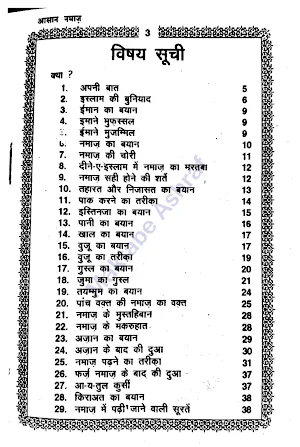 आसान नमाज़
3
विषय सूची
क्या ?
1. अपनी बात 5
2. इस्लाम की बुनियाद 6
3. ईमान का बयान 9
4. इमाने मुफस्सल 9
5. ईमाने मुजम्मिल 9
6. नमाज़ का बयान 10
7. नमाज़ की चोरी 11
8. दीने-ए-इस्लाम में नमाज़ का मरतबा 12
9. नमाज़ सही होने की शर्ते 12
10. तहारत और निजासत का बयान 13
11. पाक करने का तरीका 14
12. इस्तिनजा का बयान 15
13. पानी का बयान 16
14. खाल का बयान 17
15. वुजू का बयान 17
16. वुजू का तरीका 19
17. गुस्ल का बयान 20
18. जुमा का गुस्ल 21
19. तयम्मुम का बयान 24
20. पांच वक्त की नमाज़ का वक्त 25
21. नमाज़ के मुस्तहिबान 28
22. नमाज़ के मकरुहात 28
23. अज़ान का बयान 29
24. अज़ान के बाद की दुआ 30
25. नमाज़ पढ़ने का तरीका 31
26. फर्ज़ नमाज़ के बाद की दुआ 37
27. आ-य-तुल कुर्सी 37
28. किराअत का बयान 38
29. नमाज़ में पढ़ी जाने वाली सूरतें 38